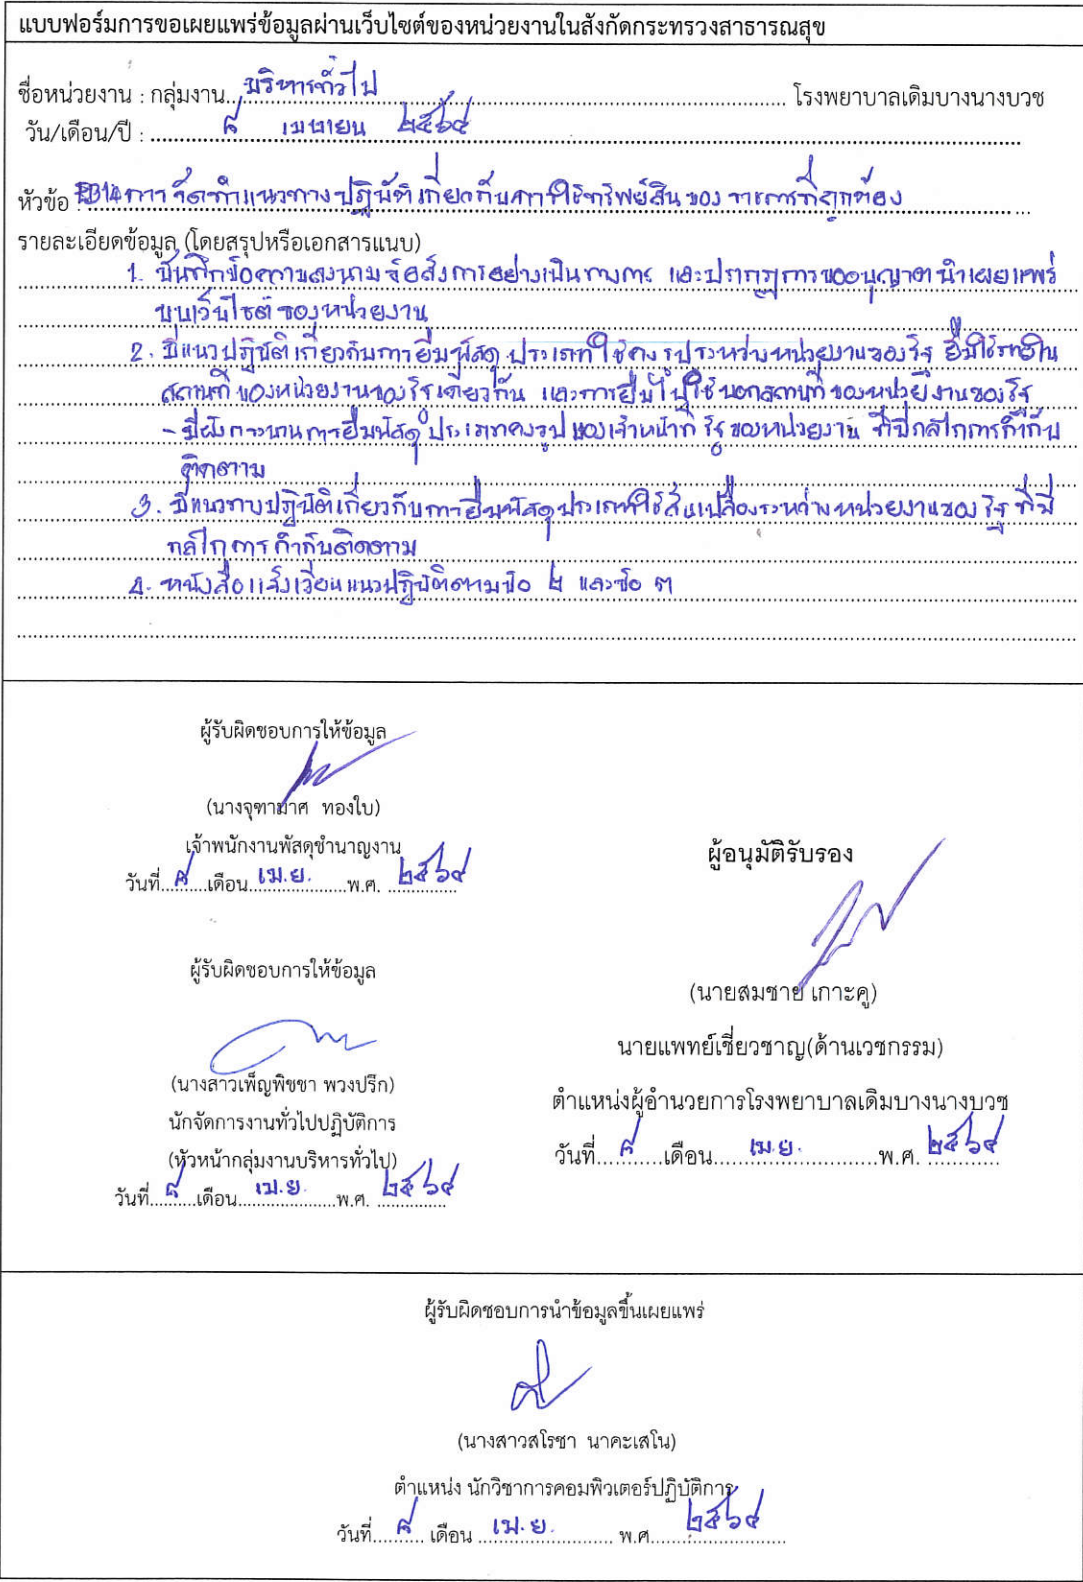 แบบฟอร์มการขอเผยแพร่ข้อมูลผ่านเว็บไซต์ของหน่วยงานในสังกัดกระทรวงสาธารณสุข
ชื่อหน่วยงาน : กลุ่มงาน..บริหารทั่วไป.......... โรงพยาบาลเดิมบางนางบวช
วัน/เดือน/ปี : ........ ๘ เมษายน ๒๕๖๔
หัวข้อ : EB14 การจัดทำแนวทางปฏิบัติเกี่ยวกับการใช้ทรัพย์สินของราชการที่ถูกต้อง
รายละเอียดข้อมูล (โดยสรุปหรือเอกสารแนบ)
1. บันทึกข้อความลงนามข้อสั่งการอย่างเป็นทางการ และปรากฏการขออนุญาตนำเผยแพร่
บนเว็บไซต์ของหน่วยงาน
2. มีแนวปฏิบัติเกี่ยวกับการยืมพัสดุประเภทใช้คงรูประหว่างหน่วยงานของรัฐ ยืมใช้ภายใน
สถานที่ของหน่วยงานของรัฐเดียวกัน และการยืมไปใช้นอกสถานที่ของหน่วยงานของรัฐ
- มีผังกระบวนการยืมพัสดุประเภทคงรูป ของเจ้าหน้าที่รัฐของหน่วยงาน ที่มีกลไกการกำกับ
ติดตาม
3. มีแนวทางปฏิบัติเกี่ยวกับการยืมพัสดุประเภทใช้สิ้นเปลืองระหว่างหน่วยงานของรัฐ ที่มี
กลไกการกำกับติดตาม
4. หนังสือแจ้งเวียนแนวปฏิบัติตามข้อ ๒ และข้อ ๓
ผู้รับผิดชอบการให้ข้อมูล
(นางจุฑามาศ ทองใบ)
เจ้าพนักงานพัสดุชำนาญงาน
วันที่...๘...เดือน...เม.ย....พ.ศ. ๒๕๖๔
ผู้รับผิดชอบการให้ข้อมูล
(นางสาวเพ็ญพิชชา พวงปรึก)
นักจัดการงานทั่วไปปฏิบัติการ
(หัวหน้ากลุ่มงานบริหารทั่วไป)
วันที่...๘...เดือน...เม.ย....พ.ศ. ๒๕๖๔
ผู้อนุมัติรับรอง
(นายสมชาย เกาะคู)
นายแพทย์เชี่ยวชาญ(ด้านเวชกรรม)
ตำแหน่งผู้อำนวยการโรงพยาบาลเดิมบางนางบวช
วันที่...๘...เดือน...เม.ย....พ.ศ. ๒๕๖๔
ผู้รับผิดชอบการนำข้อมูลขึ้นเผยแพร่
(นางสาวสโรชา นาคะเสโน)
ตำแหน่ง นักวิชาการคอมพิวเตอร์ปฏิบัติการ
วันที่...๘... เดือน ...เม.ย.... พ.ศ...๒๕๖๔